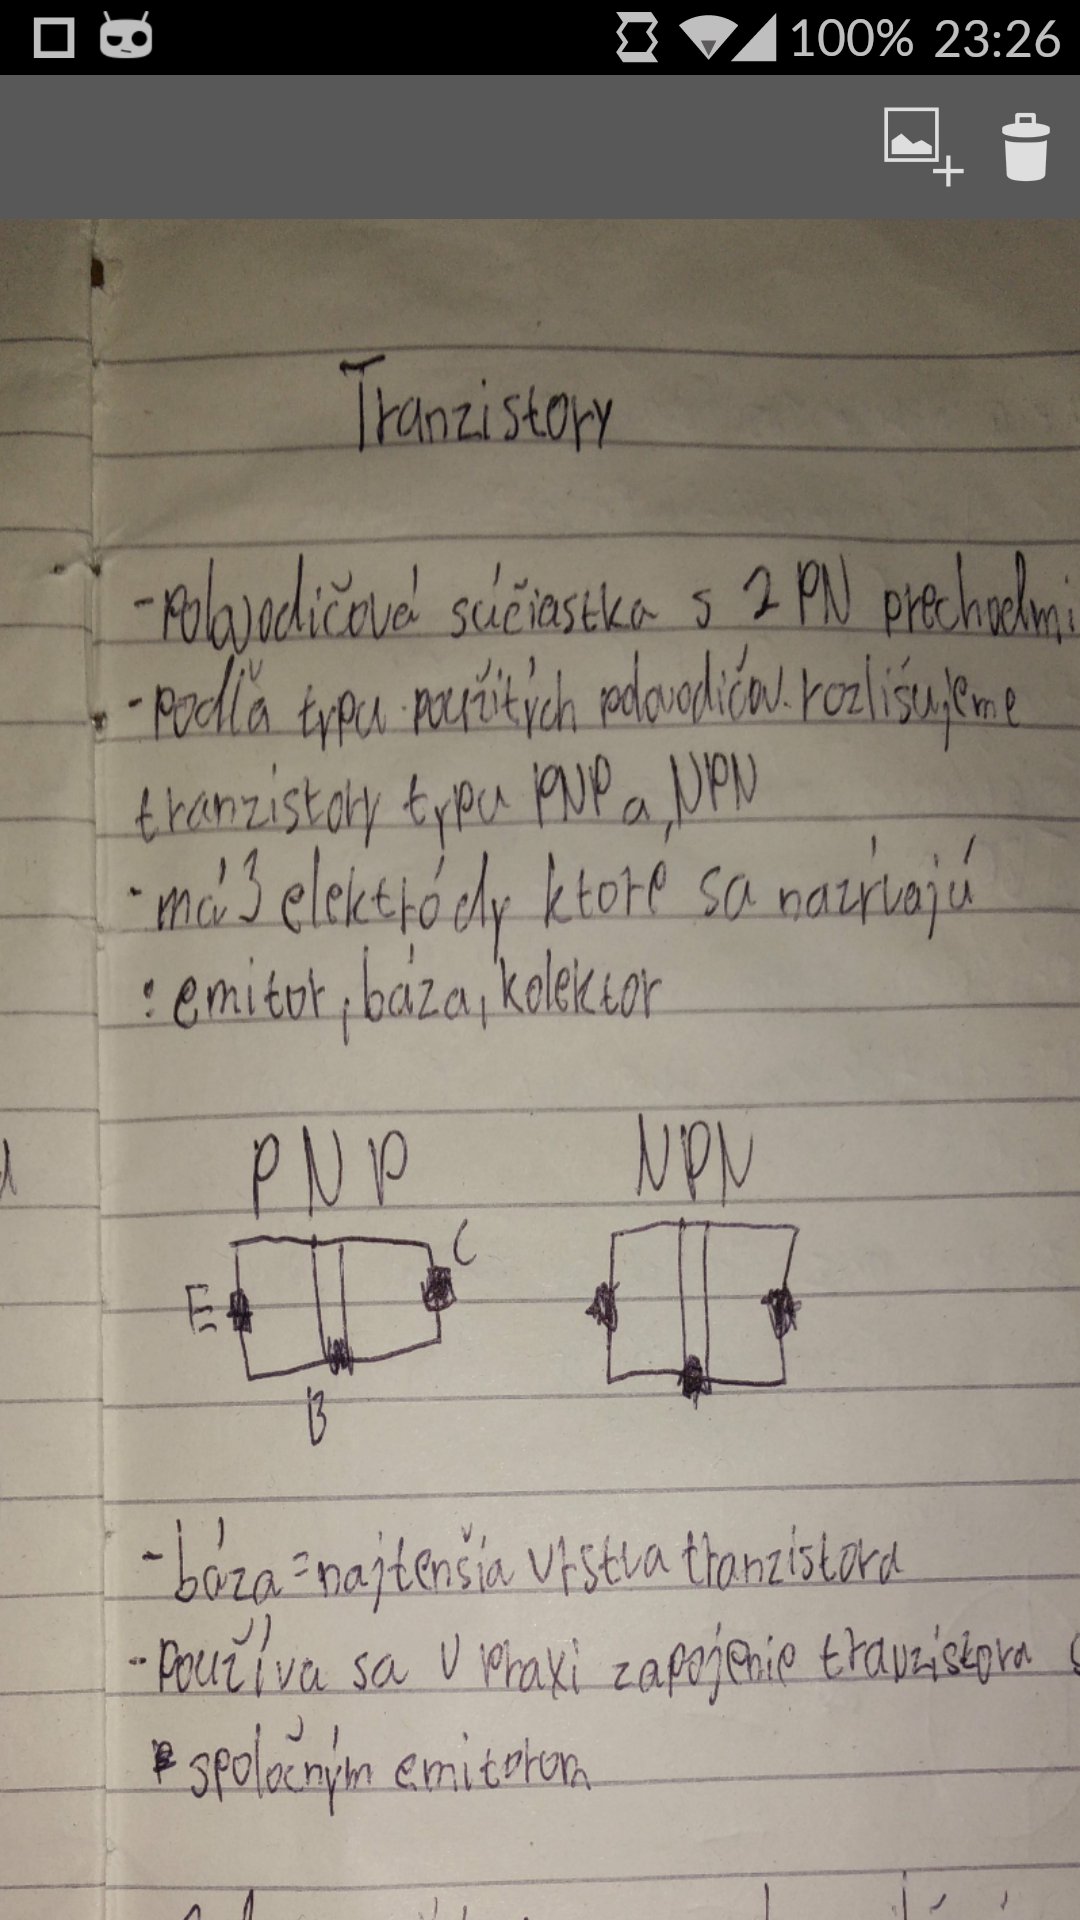 100% 23:26
Tranzistory
-polovodičová súčiastka s 2 PN prechodmi
-podľa typu použitých polovodičov rozlišujeme
tranzistory typu PNP a NPN
-má 3 elektródy ktoré sa nazívajú
: emitor, báza, kolektor
PNP NPN
C
E
B
-báza=najtenšia vrstva tranzistora
-používa sa v praxi zapojenie tranzistora s
spoločným emitorom